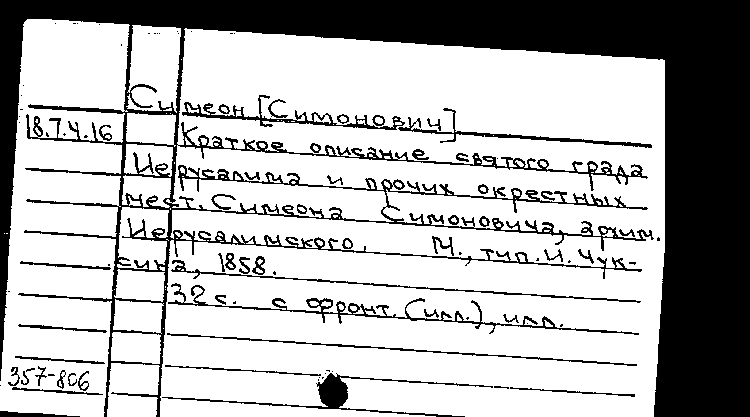 Симеон [Симонович]
18.7.4.16 Краткое описание святого града
Иерусалима и прочих окрестных
мест. Симеона Симоновича, архим.
Иерусалимского. М., тип. И. Чук-
сина, 1858.
32 с. с фронт. (илл.), илл.
357-806